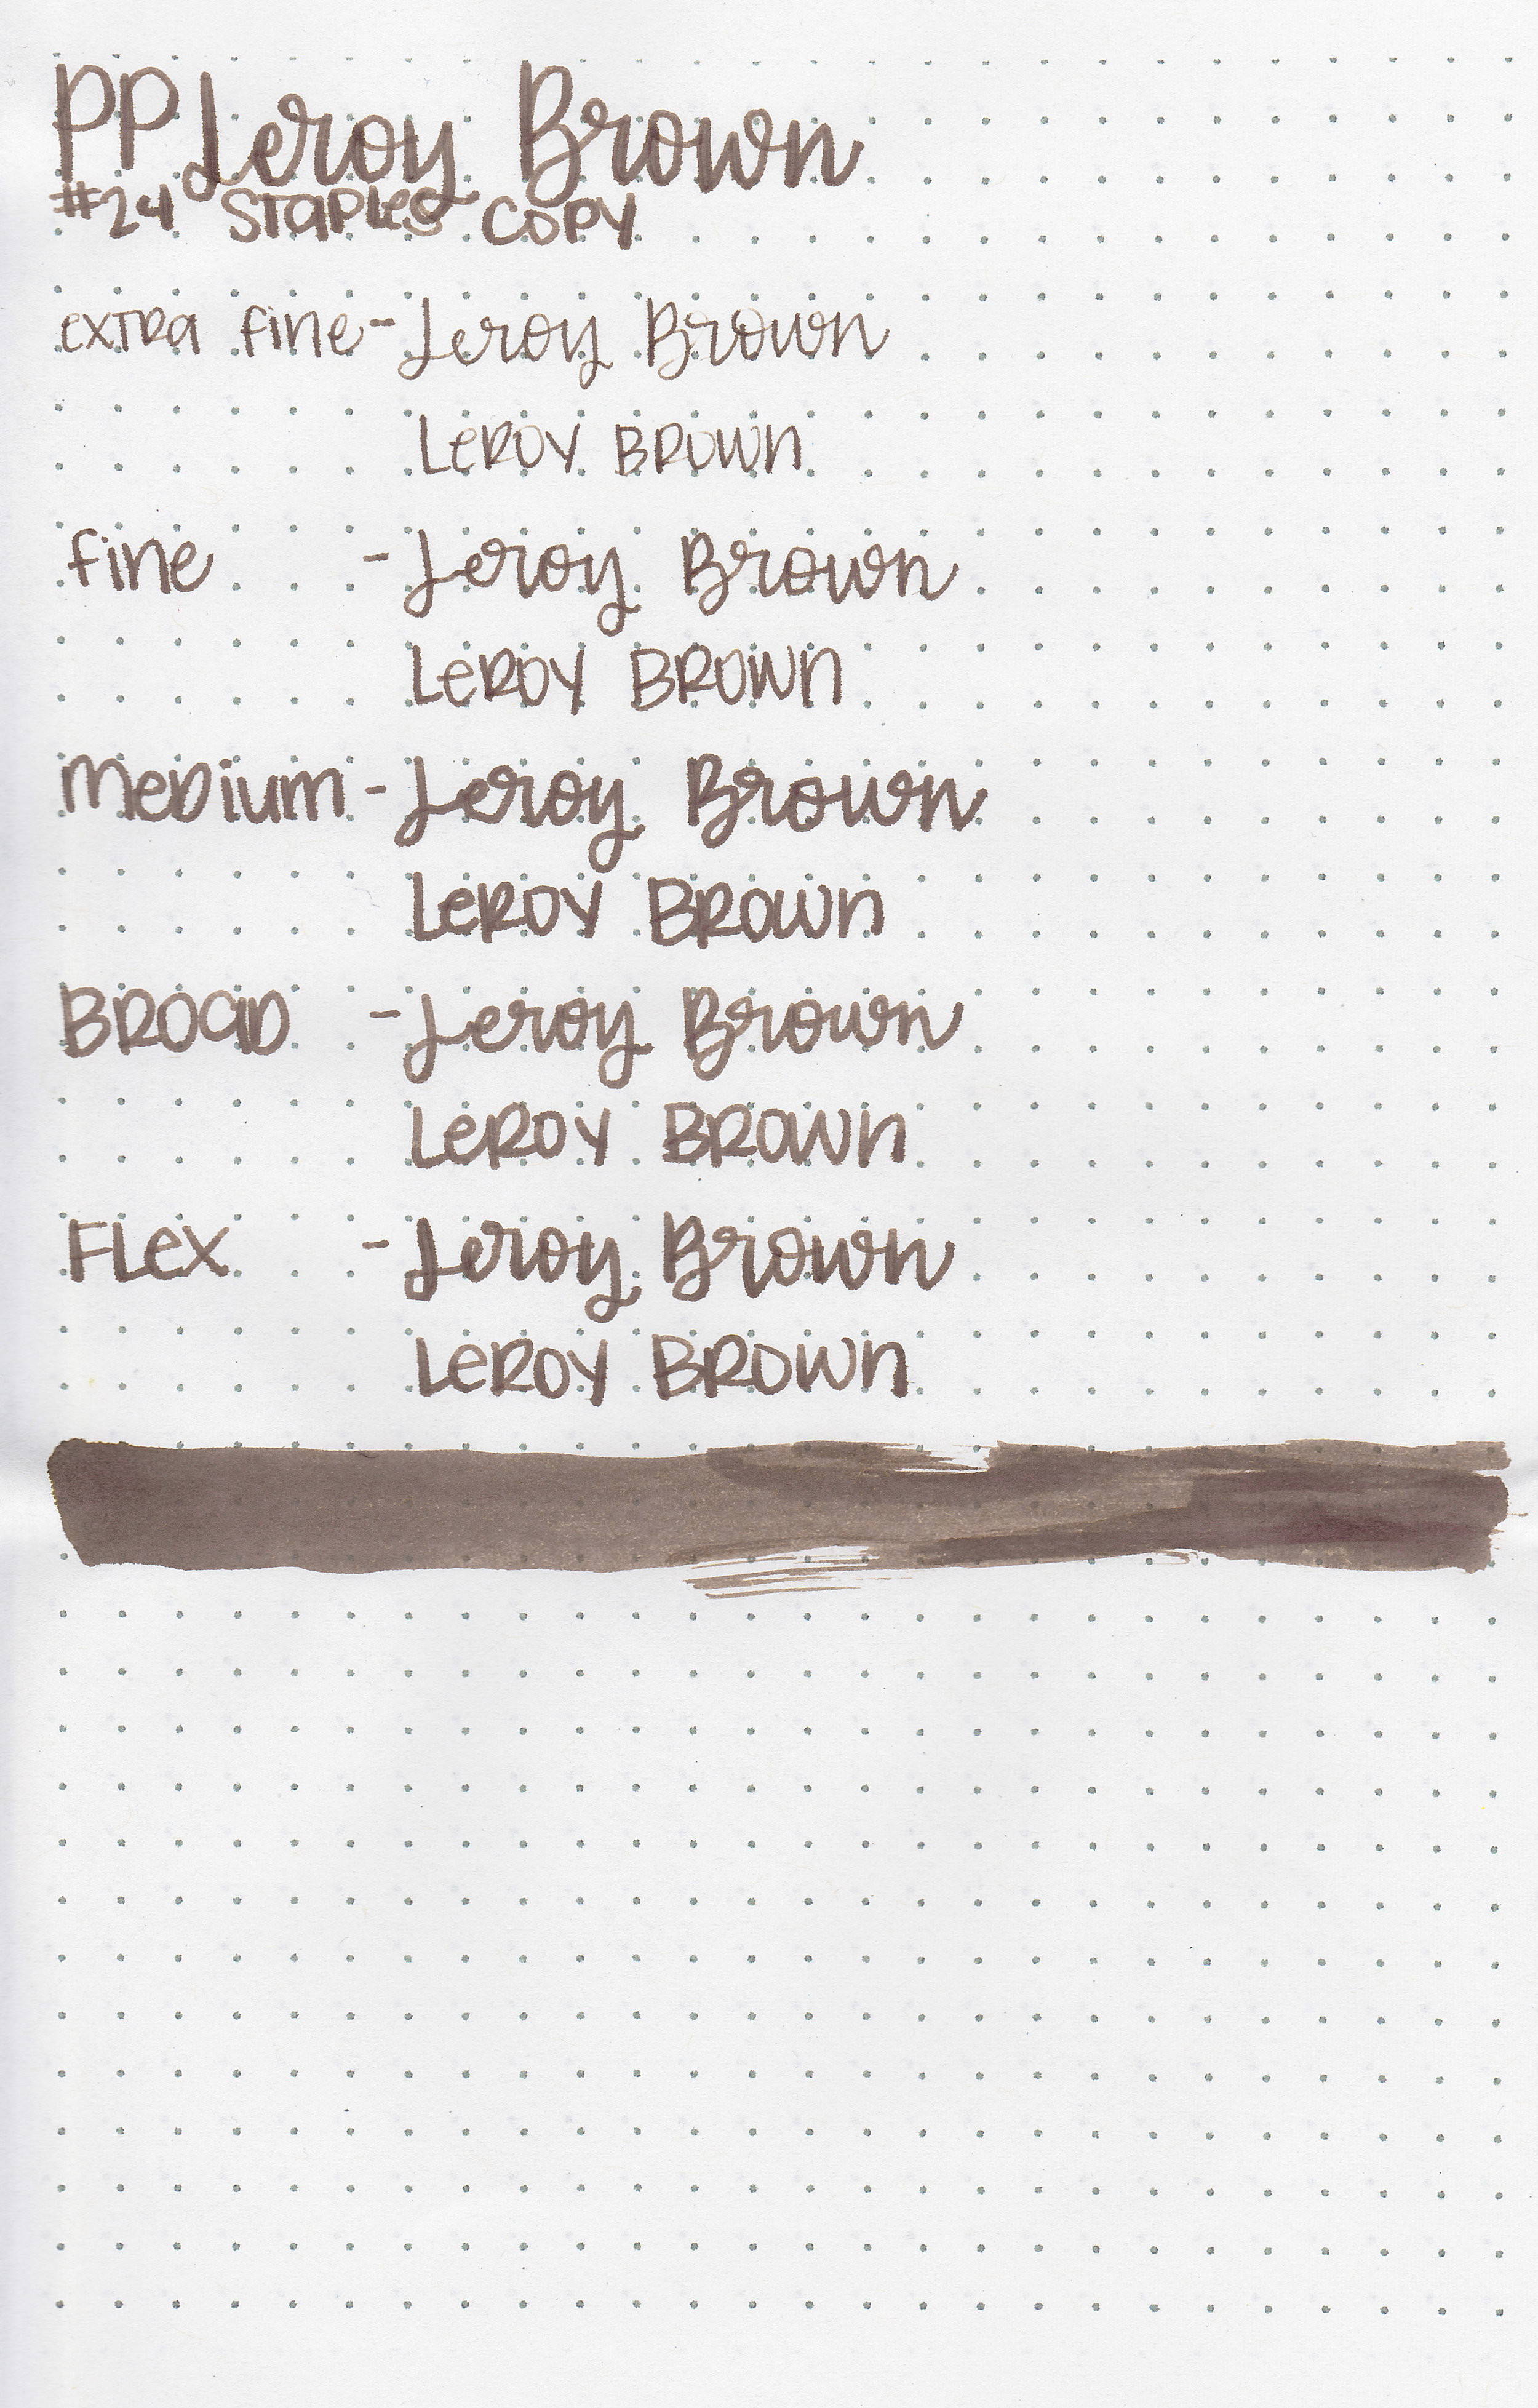 PP Leroy Brown
#24 Staples Copy
extra fine - Leroy Brown
LeROY BROWN
fine - Leroy Brown
LeROY BROWN
MeDium - Leroy Brown
LeROY BROWN
BROaD - Leroy Brown
LeROY BROWN
FLex - Leroy Brown
LeROY BROWN